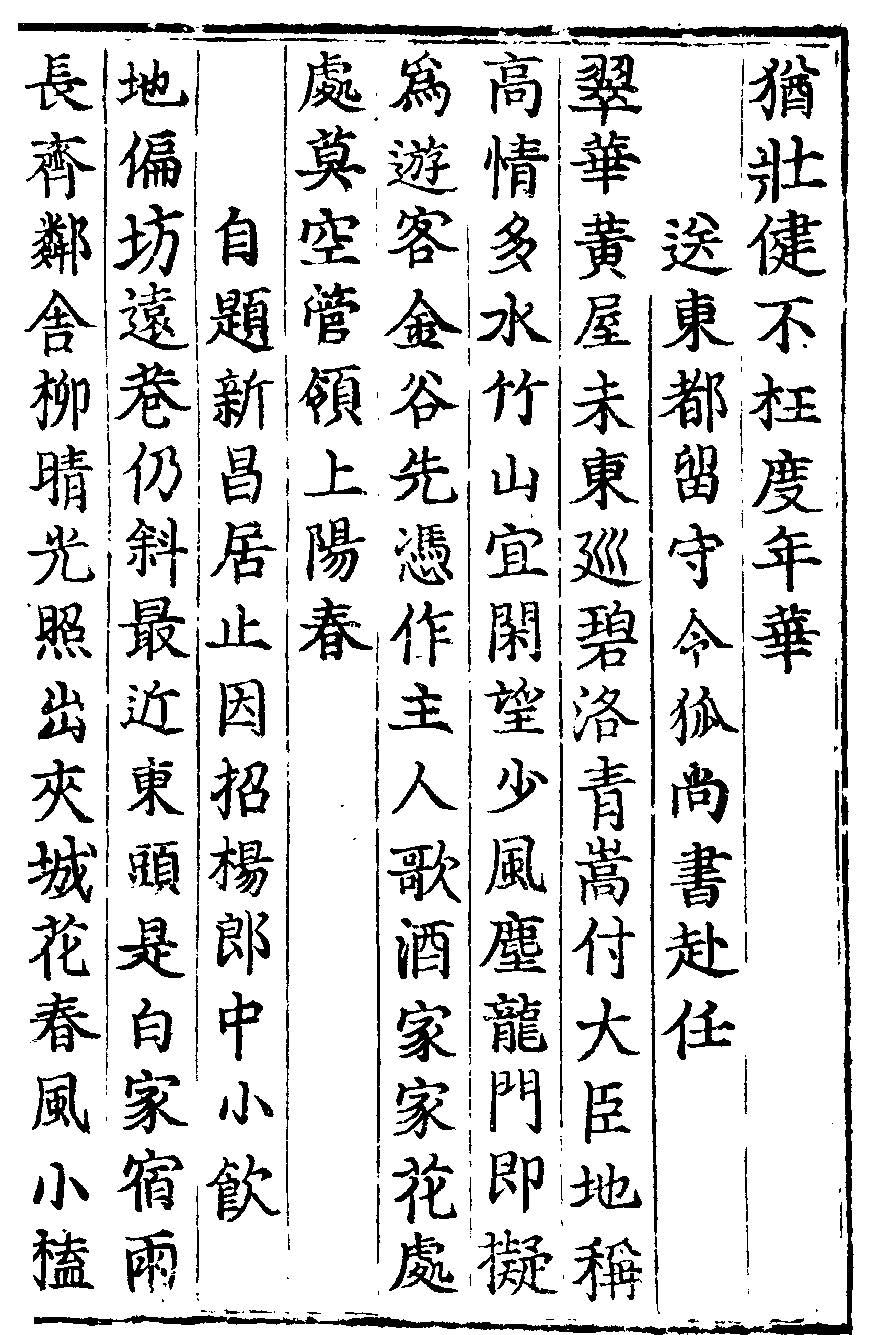 猶壯健不枉度年華
送東都留守令狐尚書赴任
翠華黃屋未東巡碧洛青嵩付大臣地稱
高情多水竹山宜閑望少風塵龍門即擬
爲遊客金谷先憑作主人歌酒家家花處
處莫空管領上陽春
自題新昌居止因招楊郎中小飲
地偏坊遠巷仍斜最近東頭是白家宿雨
長齊鄰舍柳晴光照出夾城花春風小榼